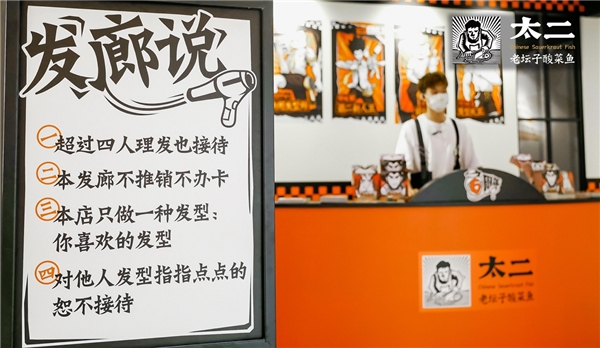 发廊说
一 超过四人理发也接待
二 本发廊不推销不办卡
三 本店只做一种发型：
你喜欢的发型
四 对他人发型指指点点的
恕不接待
太二
Chinese Sauerkraut Fish
老坛子酸菜鱼
太二
Chinese Sauerkraut Fish
老坛子酸菜鱼